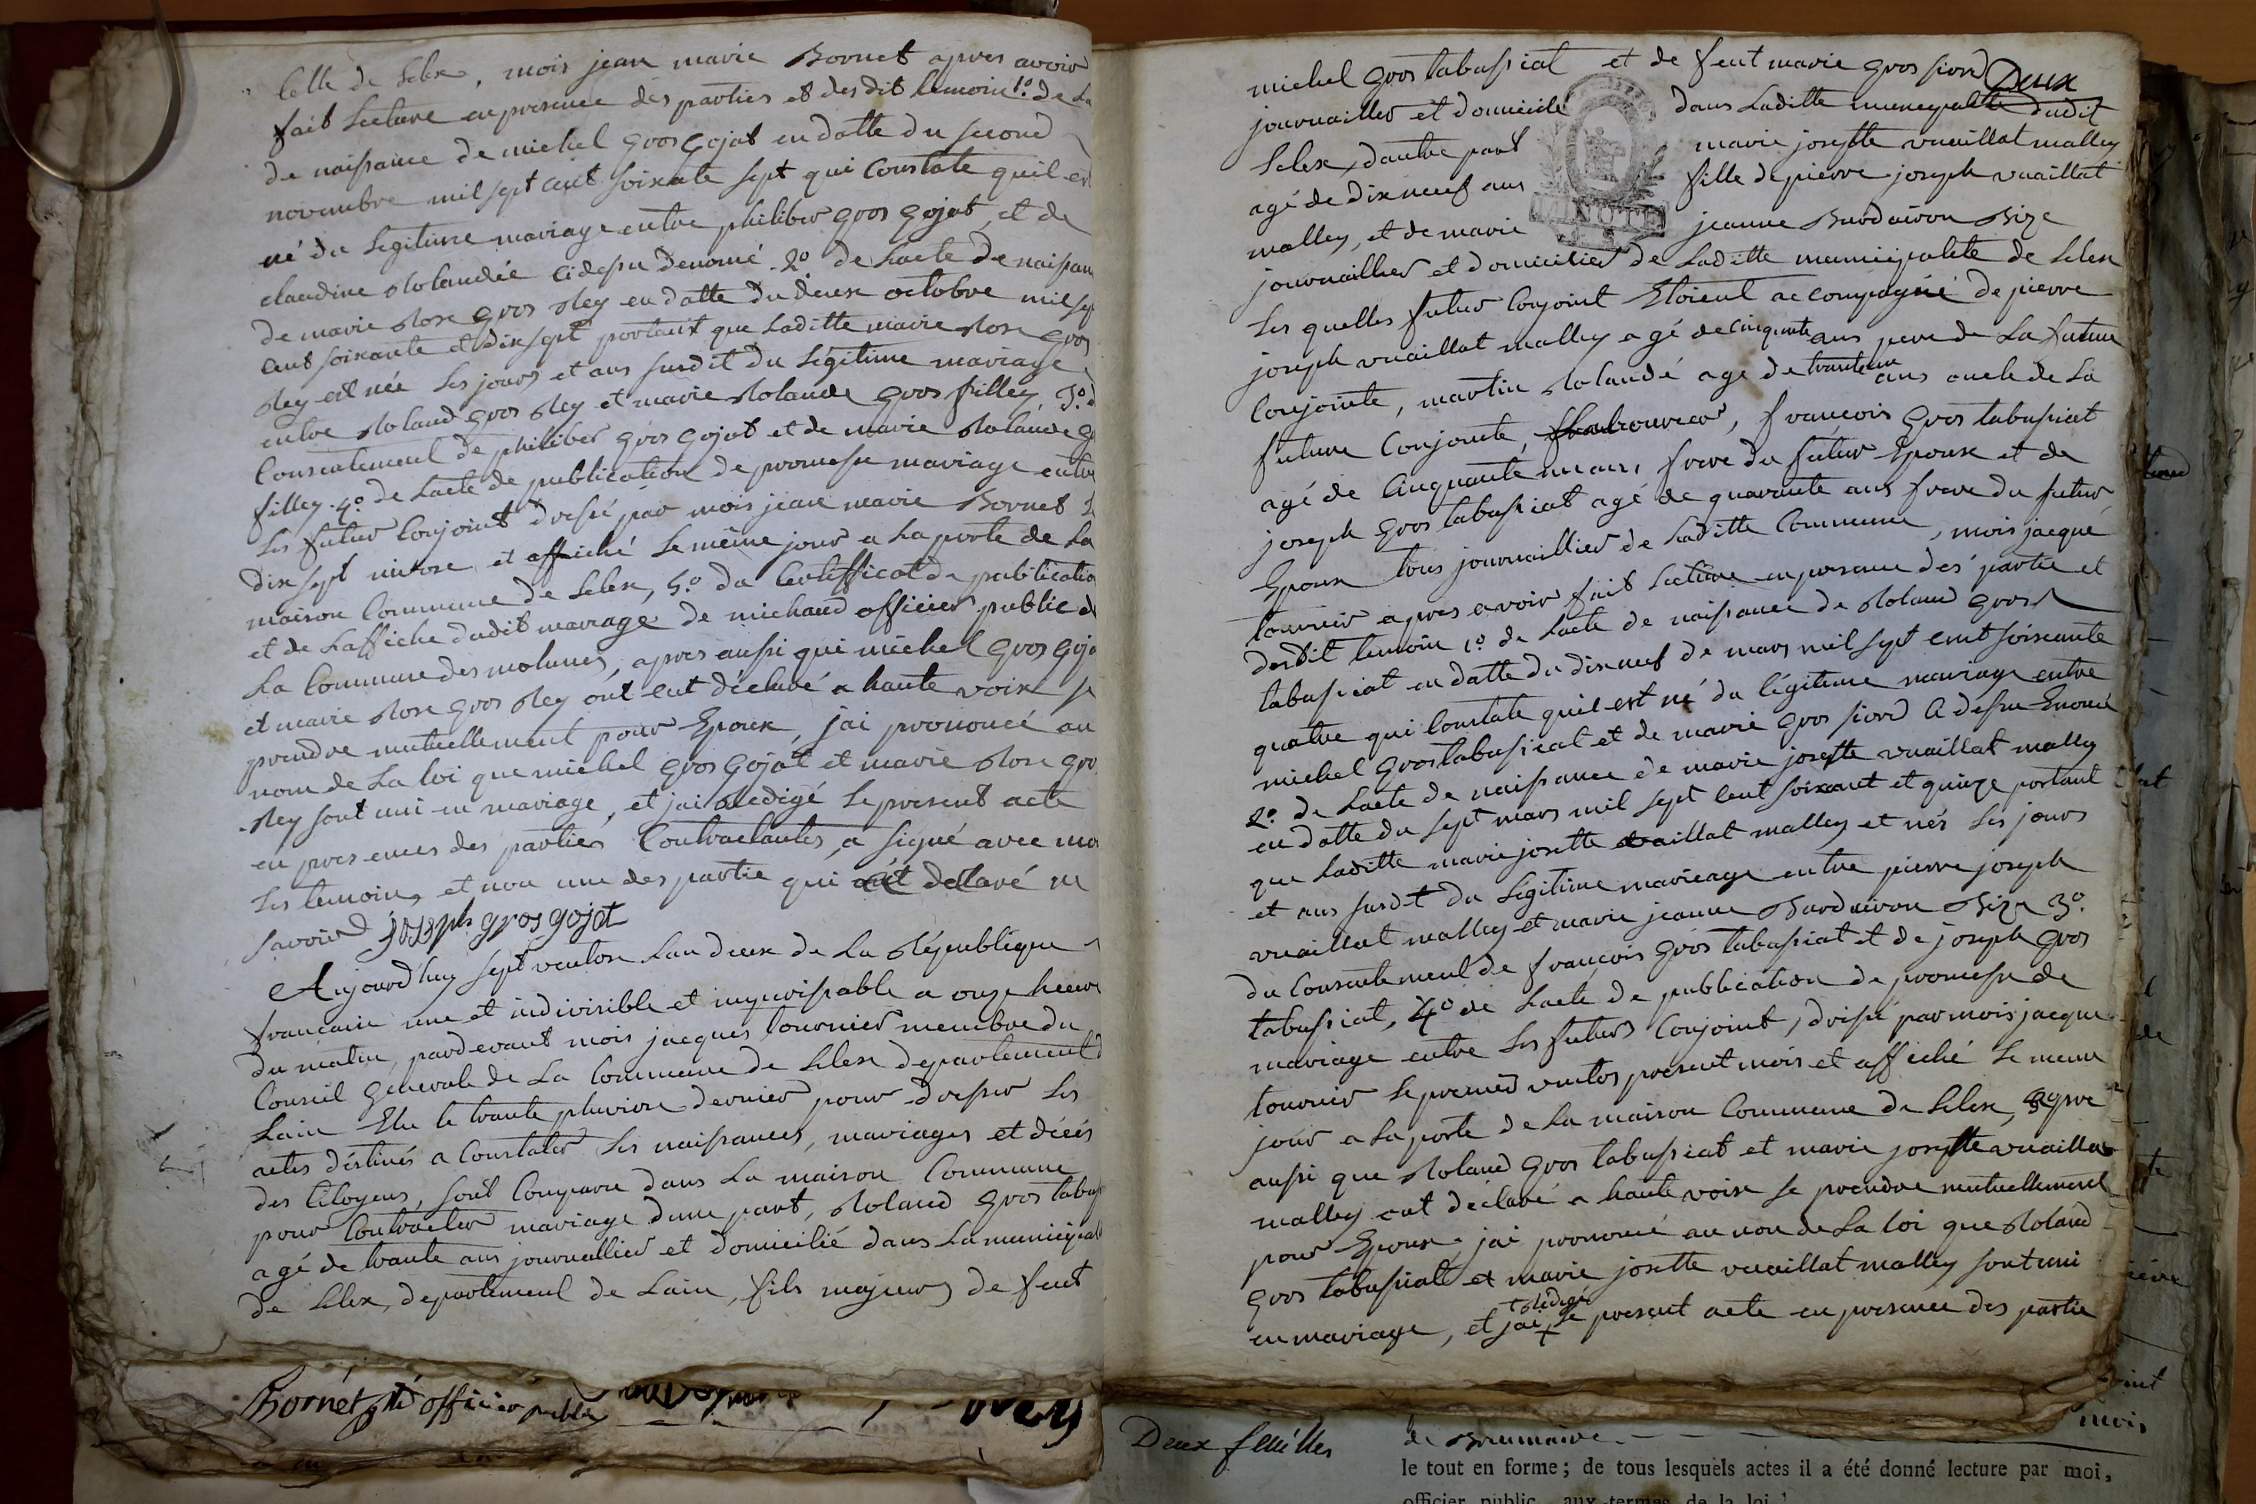 Celle de Lelex, mois jean marie Bornet apres avoir
fait Lecture en presence des parties et desdit temoin 1.º de La
de naissance de michel gros gojat en datte du second
novembre mil sept cent soixante sept qui Constate quil est
né du Legitime mariage entre philiber gros gojat, et de
claudine Rolandée Cidessu denomé. 2º de Lacte de naissan
de marie Rose gros Rey en datte du deux octobre mil sep
cent soixante et dix sept portant que Laditte marie Rose gros
Rey est née Les jours et ans susdit du Légitime mariage
entre Roland gros Rey et marie Rolande gros filley, 3.º d
Consentement de philiber gros gojat et de marie Rolande g
filley. 4.º de Lacte de publication de promesse mariage entre
Les futur Conjoint dressé par mois jean marie Bornet L
dix sept nivose et affiché Le même jour a La porte de La
maison Commune de Lelex, 5.º du Certifficat de publicatio
et de Laffiche dudit mariage de michaud officier public de
La Commune des molunes, apres aussi qui michel gros goja
et marie Rose gros Rey ont eut déclaré a haute voix se
prendre mutuellement pour Epoux, jai prononcé au
nom de La loi que michel gros gojat et marie Rose gro
Rey sont uni en mariage, et jai Redigé Le present acte
en presences des parties Contractantes, a signé avec moi
Les temoins, et non une des partie qui ont declaré ne
savoir joseph gros gojat
Aujourd'huy sept ventose Lan deux de La République
francaise une et indivisible et imperissable a onze heure
du matin, pardevant mois jacques tournier membre du
Conseil Génerale de La Commune de Lelex departement d
Lain Elu le trante pluviose dernier pour dresser Les
actes déstinés a Constater Les naissances, mariages et décés
des Citoyens, sont Comparu dans La maison Commune
pour Contracter mariage dune part, Roland gros tabus
agé de trante ans journallier et domicilié dans La municipal
de Lelex, departement de Lain, fils majeur de feut
Bornet officier public
Rey
michel gros tabussiat et de feut marie gros siord Deux
journailler et domicilié dans Laditte municipalite dudit
Lelex, dautre part marie josette vuaillat malley
agé de dix neuf ans fille de pierre joseph vuaillat
malley, et de marie jeanne Burdairon Bize
journaillier et domicilier de Laditte municipalité de Lelex
Les quelles futur Conjoint Etoient accompagné de pierre
joseph vuaillat malley agé de cinquante ans pere de La future
Conjointe, martin Rolandé agé de trante un ans oncle de La
future Conjointe, francois gros tabussiat
agé de Cinquante un ans, frere du futur Epoux et de
joseph gros tabussiat agé de quarante ans frere du futur
Epoux tous journaillier de Laditte Commune, mois jacque
tournier apres avoir fait Lecture en presence dés partie et
desdit temoin 1.º de Lacte de naissance de Roland gros
tabussiat en datte du dix neuf de mars mil sept cent soixante
quatre qui Constate quil est né du légitime mariage entre
michel gros tabussiat et de marie gros siord Cidessu Enoncé
2.º de Lacte de naissance de marie josette vuaillat malley
en datte du sept mars mil sept cent soixant et quinze portant
que Laditte marie josette vuaillat malley et nés Les jours
et ans susdit du Légitime mariage entre pierre joseph
vuaillat malley et marie jeanne Burdairon Bize 3.º
du Consentement de francois gros tabussiat et de joseph gros
tabussiat, 4.º de Lacte de publication de promesse de
mariage entre Les futurs Conjoint, dressé par mois jacque
tournier Le premier ventos present mois et affiché Le meme
jour a La porte de La maison Commune de Lelex, apre
aussi que Roland gros tabussiat et marie josette vuaillat
malley eut déclaré a haute voix se prendre mutuellement
pour Epoux, jai prononcé au non de La loi que Roland
gros tabussiat et marie josette vuaillat malley sont uni
en mariage, et jai Redigé Le present acte en presence des partie
Deux feuilles
mois
de Brumaire
le tout en forme ; de tous lesquels actes il a été donné lecture par moi,
officier public, aux termes de la loi